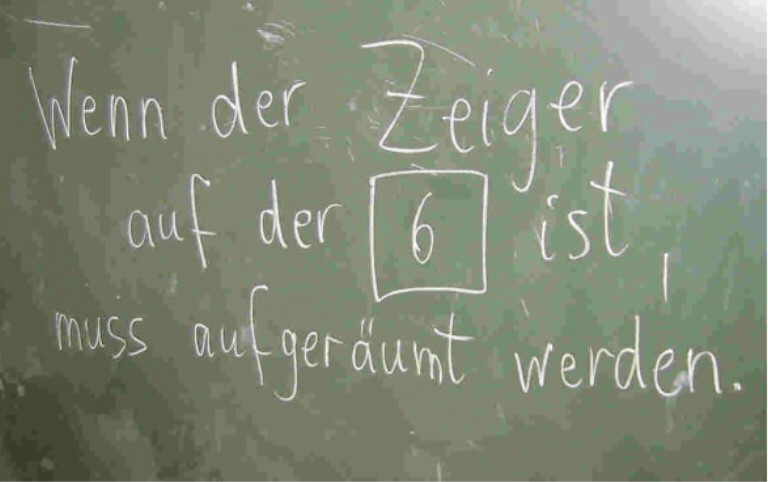 Wenn der Zeiger
auf der 6 ist,
muss aufgeräumt werden.